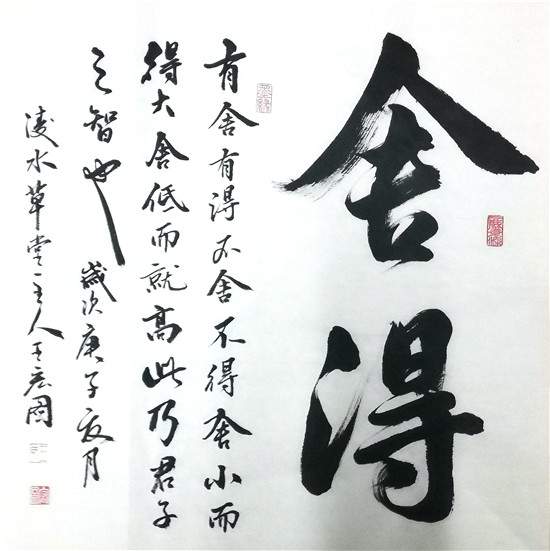 舍得
有舍有得不舍不得舍小而
得大舍低而就高此乃君子
之智也 歲次庚子夏月
淩水草堂主人王宏